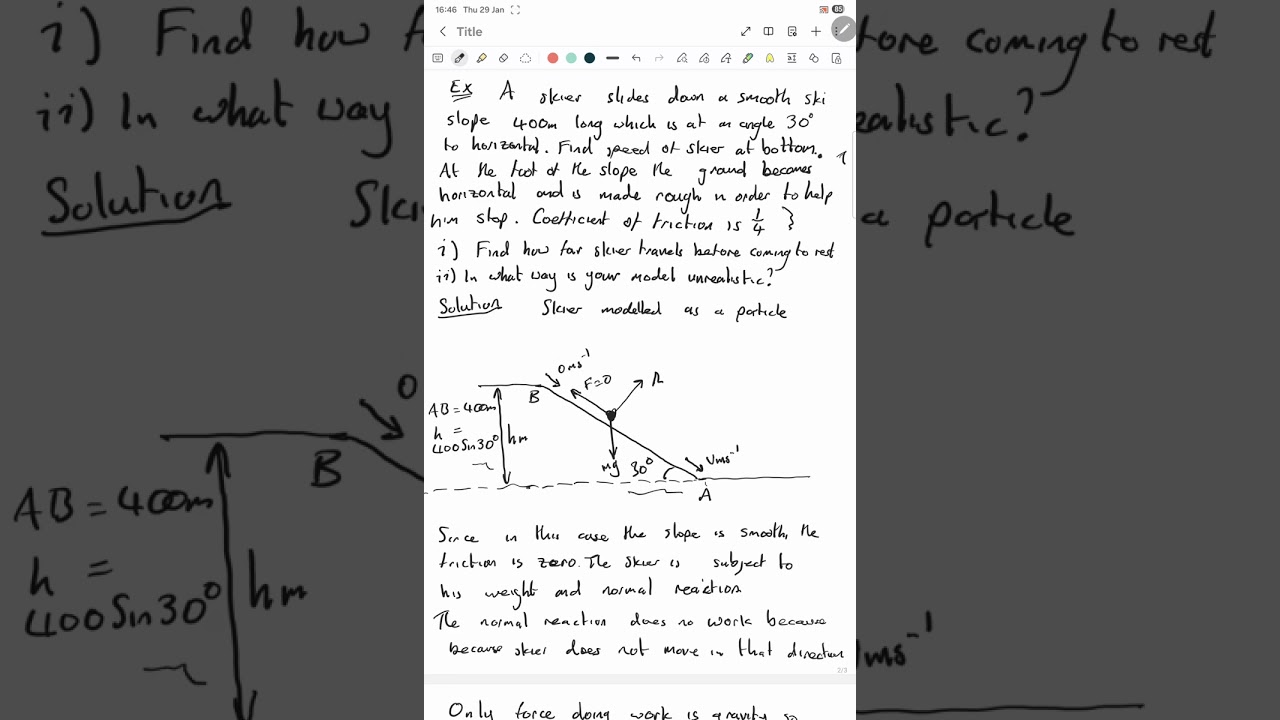 16:46 Thu 29 Jan
85
Title
Ex A skier slides down a smooth ski
slope 400m long which is at an angle 30°
to horizontal. Find speed of skier at bottom.
At the foot of the slope the ground becomes
horizontal and is made rough in order to help
him stop. Coefficient of friction is 1/4 }
i) Find how far skier travels before coming to rest
ii) In what way is your model unrealistic?
Solution Skier modelled as a particle
0ms⁻¹
F=0
R
B
AB = 400m
h =
400Sin30°
hm
mg
30°
Vms⁻¹
A
Since in this case the slope is smooth, the
friction is zero. The skier is subject to
his weight and normal reaction
The normal reaction does no work because
because skier does not move in that direction
2/3
Only force doing work is gravity so
i) Find how f
ii) In what way
Solution Skie
0
B
AB = 400m
h =
400Sin30°
hm
ore coming to rest
ealistic?
a particle
Vms⁻¹